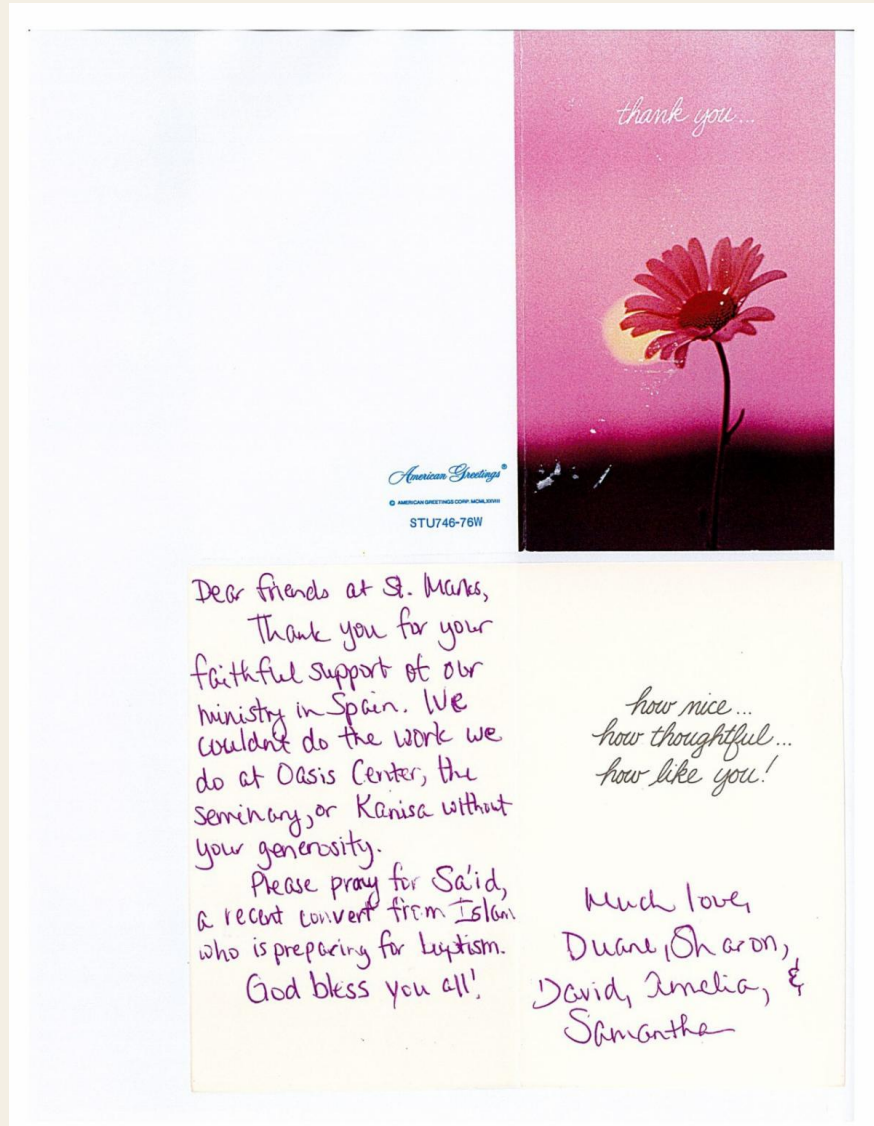 thank you...
American Greetings®
© AMERICAN GREETINGS CORP. MCMLXXVIII
STU746-76W
Dear friends at St. Marks,
Thank you for your
faithful support of our
ministry in Spain. We
couldn't do the work we
do at Oasis Center, the
seminary, or Kanisa without
your generosity.
Please pray for Sa'id,
a recent convert from Islam
who is preparing for baptism.
God bless you all!
how nice...
how thoughtful...
how like you!
Much love,
Duane, Sharon,
David, Amelia, &
Samantha